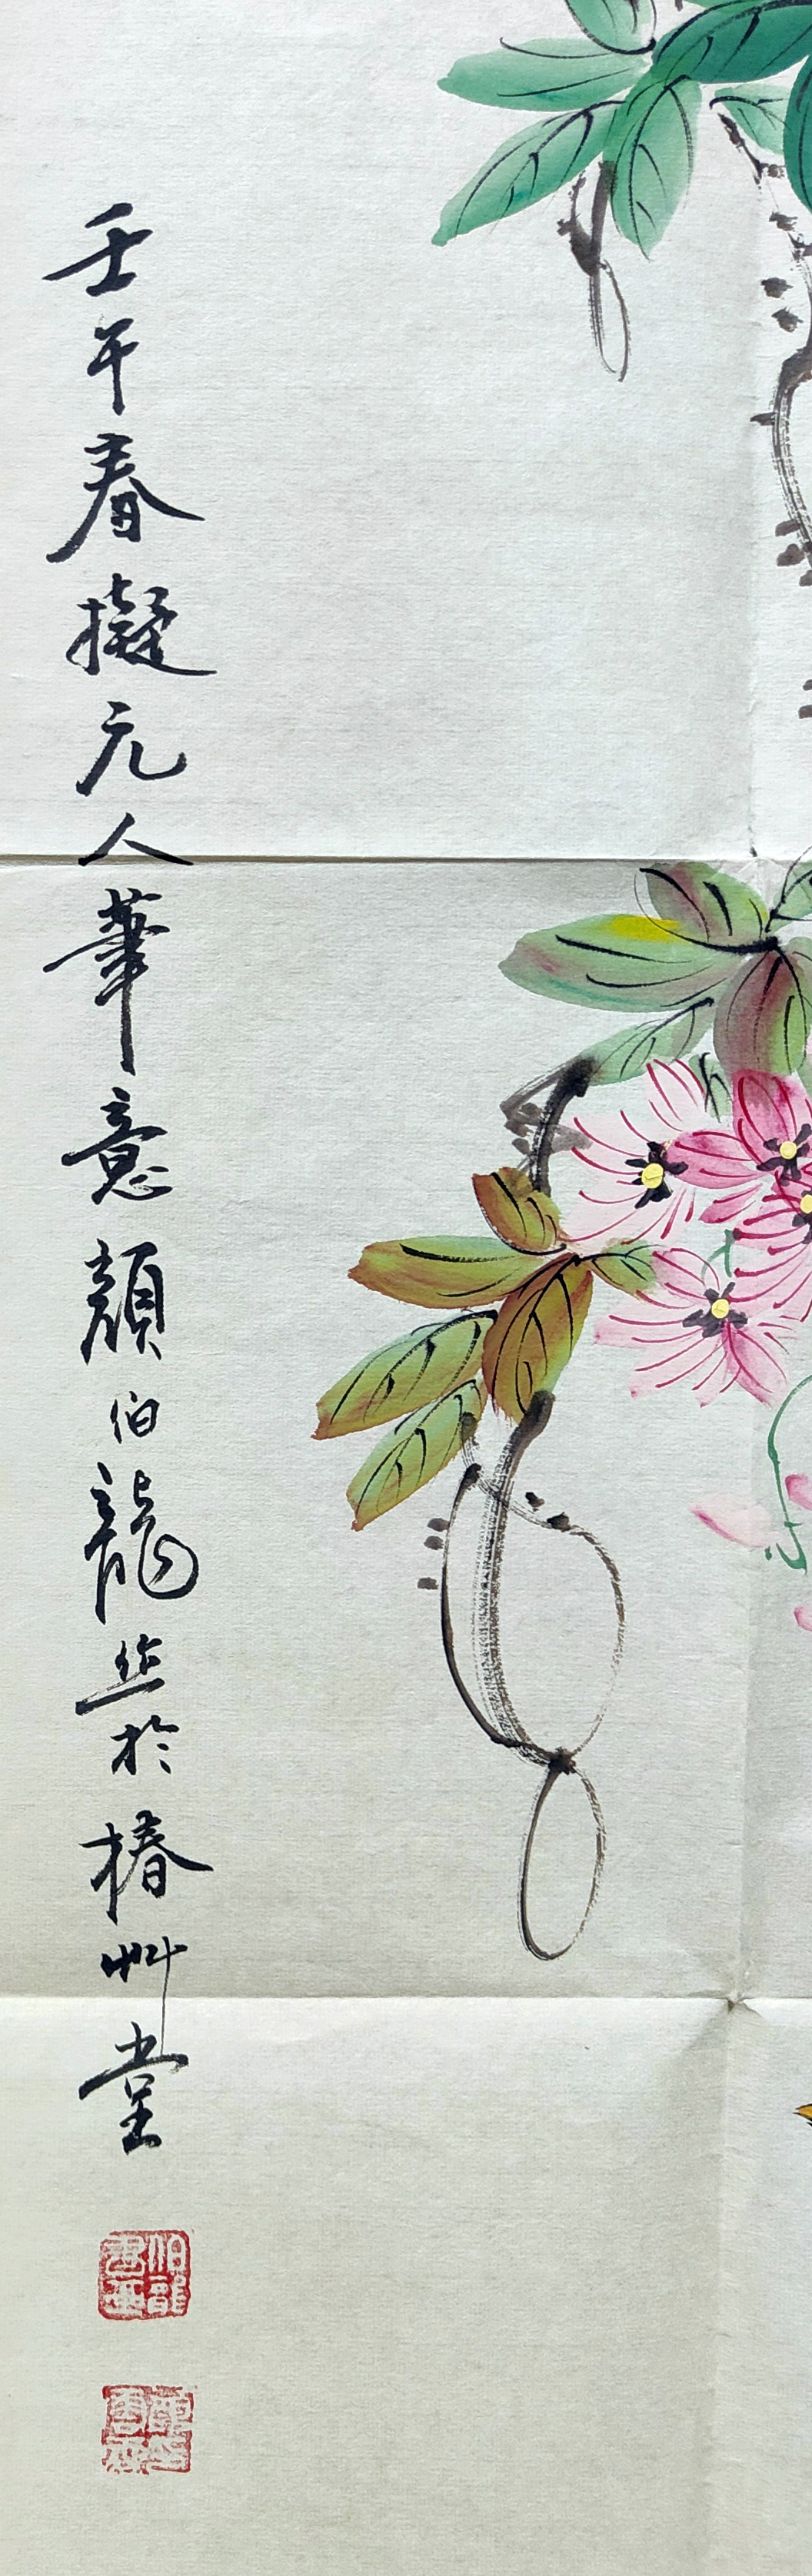 壬午春擬元人筆意顏伯龍作於椿艸堂
伯龍書畫